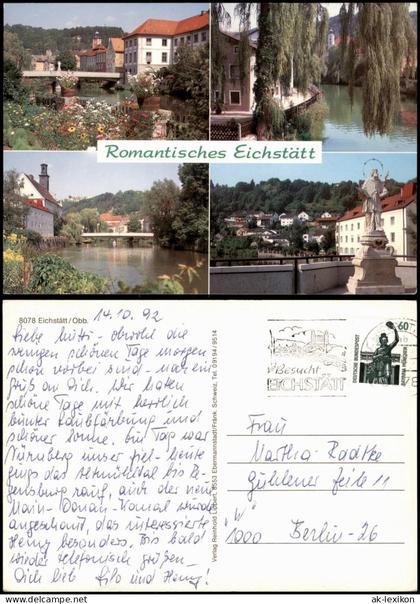 Romantisches Eichstätt
8078 Eichstätt/Obb.
14.10.92
Liebe Mutti - obwohl die
wenigen schönen Tage morgen
schon vorbei sind - mal ein
Gruß an Dich. Wir hatten
schöne Tage mit herrlich
bunter Laubfärbung und
schöner Sonne. Ein Tag war
Nürnberg unser Ziel - heute
gings das Altmühltal bis Re-
gensburg rauf, auch der neue
Main-Donau-Kanal wurde
angeschaut, das interessierte
Henry besonders. Bis bald
wieder telefonisch grüßen
Dich lieb Lilo und Henry!
Verlag Reinhold Lubbert, 8553 Ebermannstadt/Fränk. Schweiz, Tel. 09194/9514
Besucht
EICHSTÄTT
DEUTSCHE BUNDESPOST
60
Frau
Martha Radtke
Gühlener Zeile 11
"W"
1000 Berlin-26
© www.ak-lexikon.de
www.ak-lexikon.com